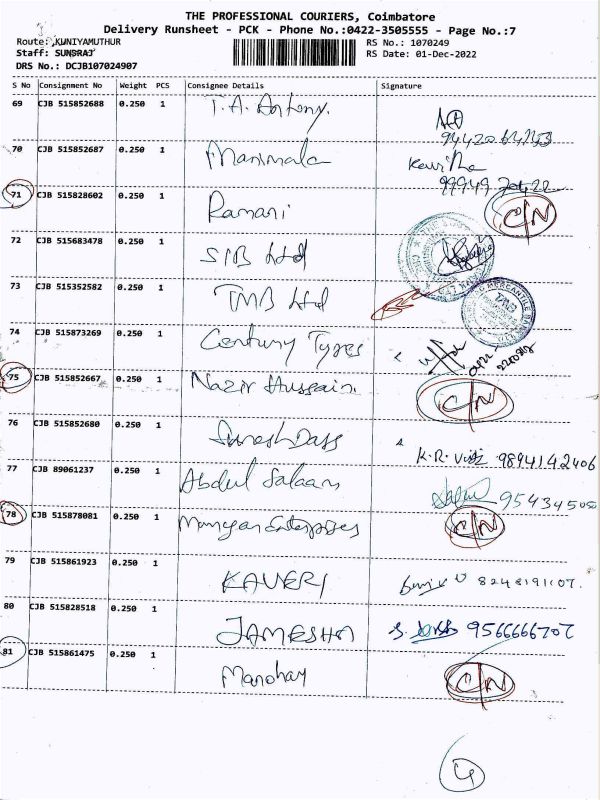 THE PROFESSIONAL COURIERS, Coimbatore
Delivery Runsheet - PCK - Phone No.:0422-3505555 - Page No.:7
Route: KUNIYAMUTHUR RS No.: 1070249
Staff: SUNDRAJ RS Date: 01-Dec-2022
DRS No.: DCJB107024907
S No Consignment No Weight PCS Consignee Details Signature
69 CJB 515852688 0.250 1 T. A. Antony.
70 CJB 515852687 0.250 1 Manimala
71 CJB 515828602 0.250 1 Ramani C/N
72 CJB 515683478 0.250 1 SIB Ltd
73 CJB 515352582 0.250 1 TMB Ltd
74 CJB 515873269 0.250 1 Century Tyres
75 CJB 515852667 0.250 1 Nazir Hussain. C/N
76 CJB 515852680 0.250 1 Suresh Dass K.R. 9894142406
77 CJB 89061237 0.250 1 Abdul Salaam
78 CJB 515878081 0.250 1 Enterprises C/N
79 CJB 515861923 0.250 1 KAVERI 8248191107.
80 CJB 515828518 0.250 1 JAMESHA S. 9566666707
81 CJB 515861475 0.250 1 Manohar C/N
4